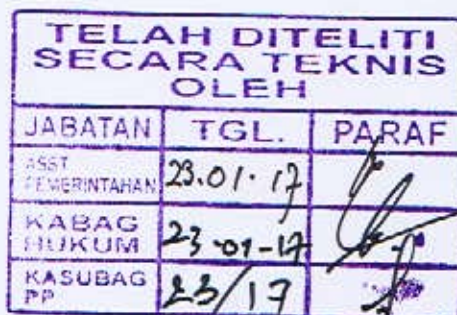 TELAH DITELITI
SECARA TEKNIS
OLEH
JABATAN TGL. PARAF
ASST
PEMERINTAHAN 23.01.17
KABAG
HUKUM 23-01-17
KASUBAG
PP 23/17